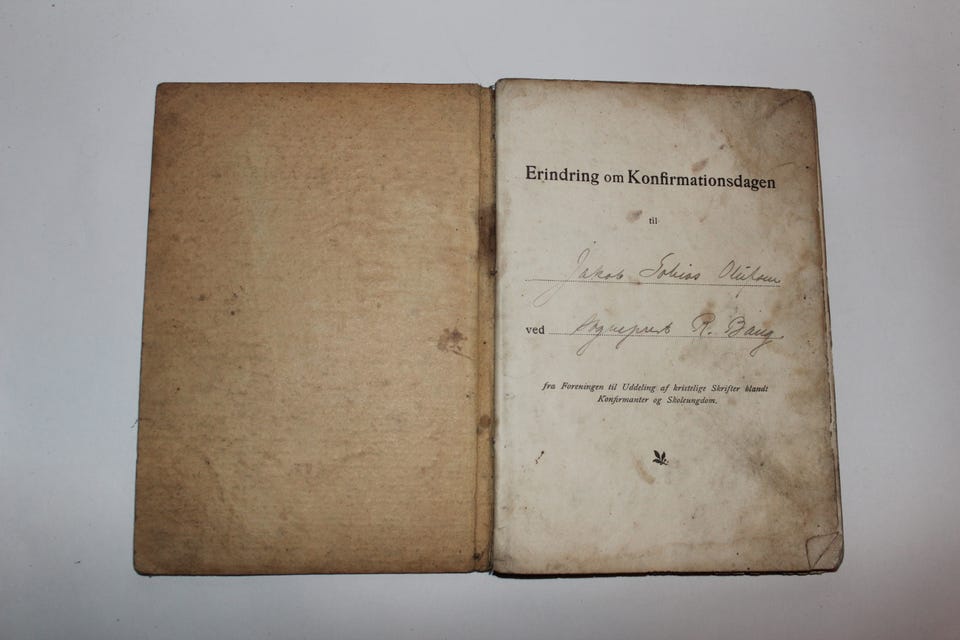 Erindring om Konfirmationsdagen
til
Jakob Tobias Olufsen
ved Sogneprest R. Bang
fra Foreningen til Uddeling af kristelige Skrifter blandt
Konfirmanter og Skoleungdom.